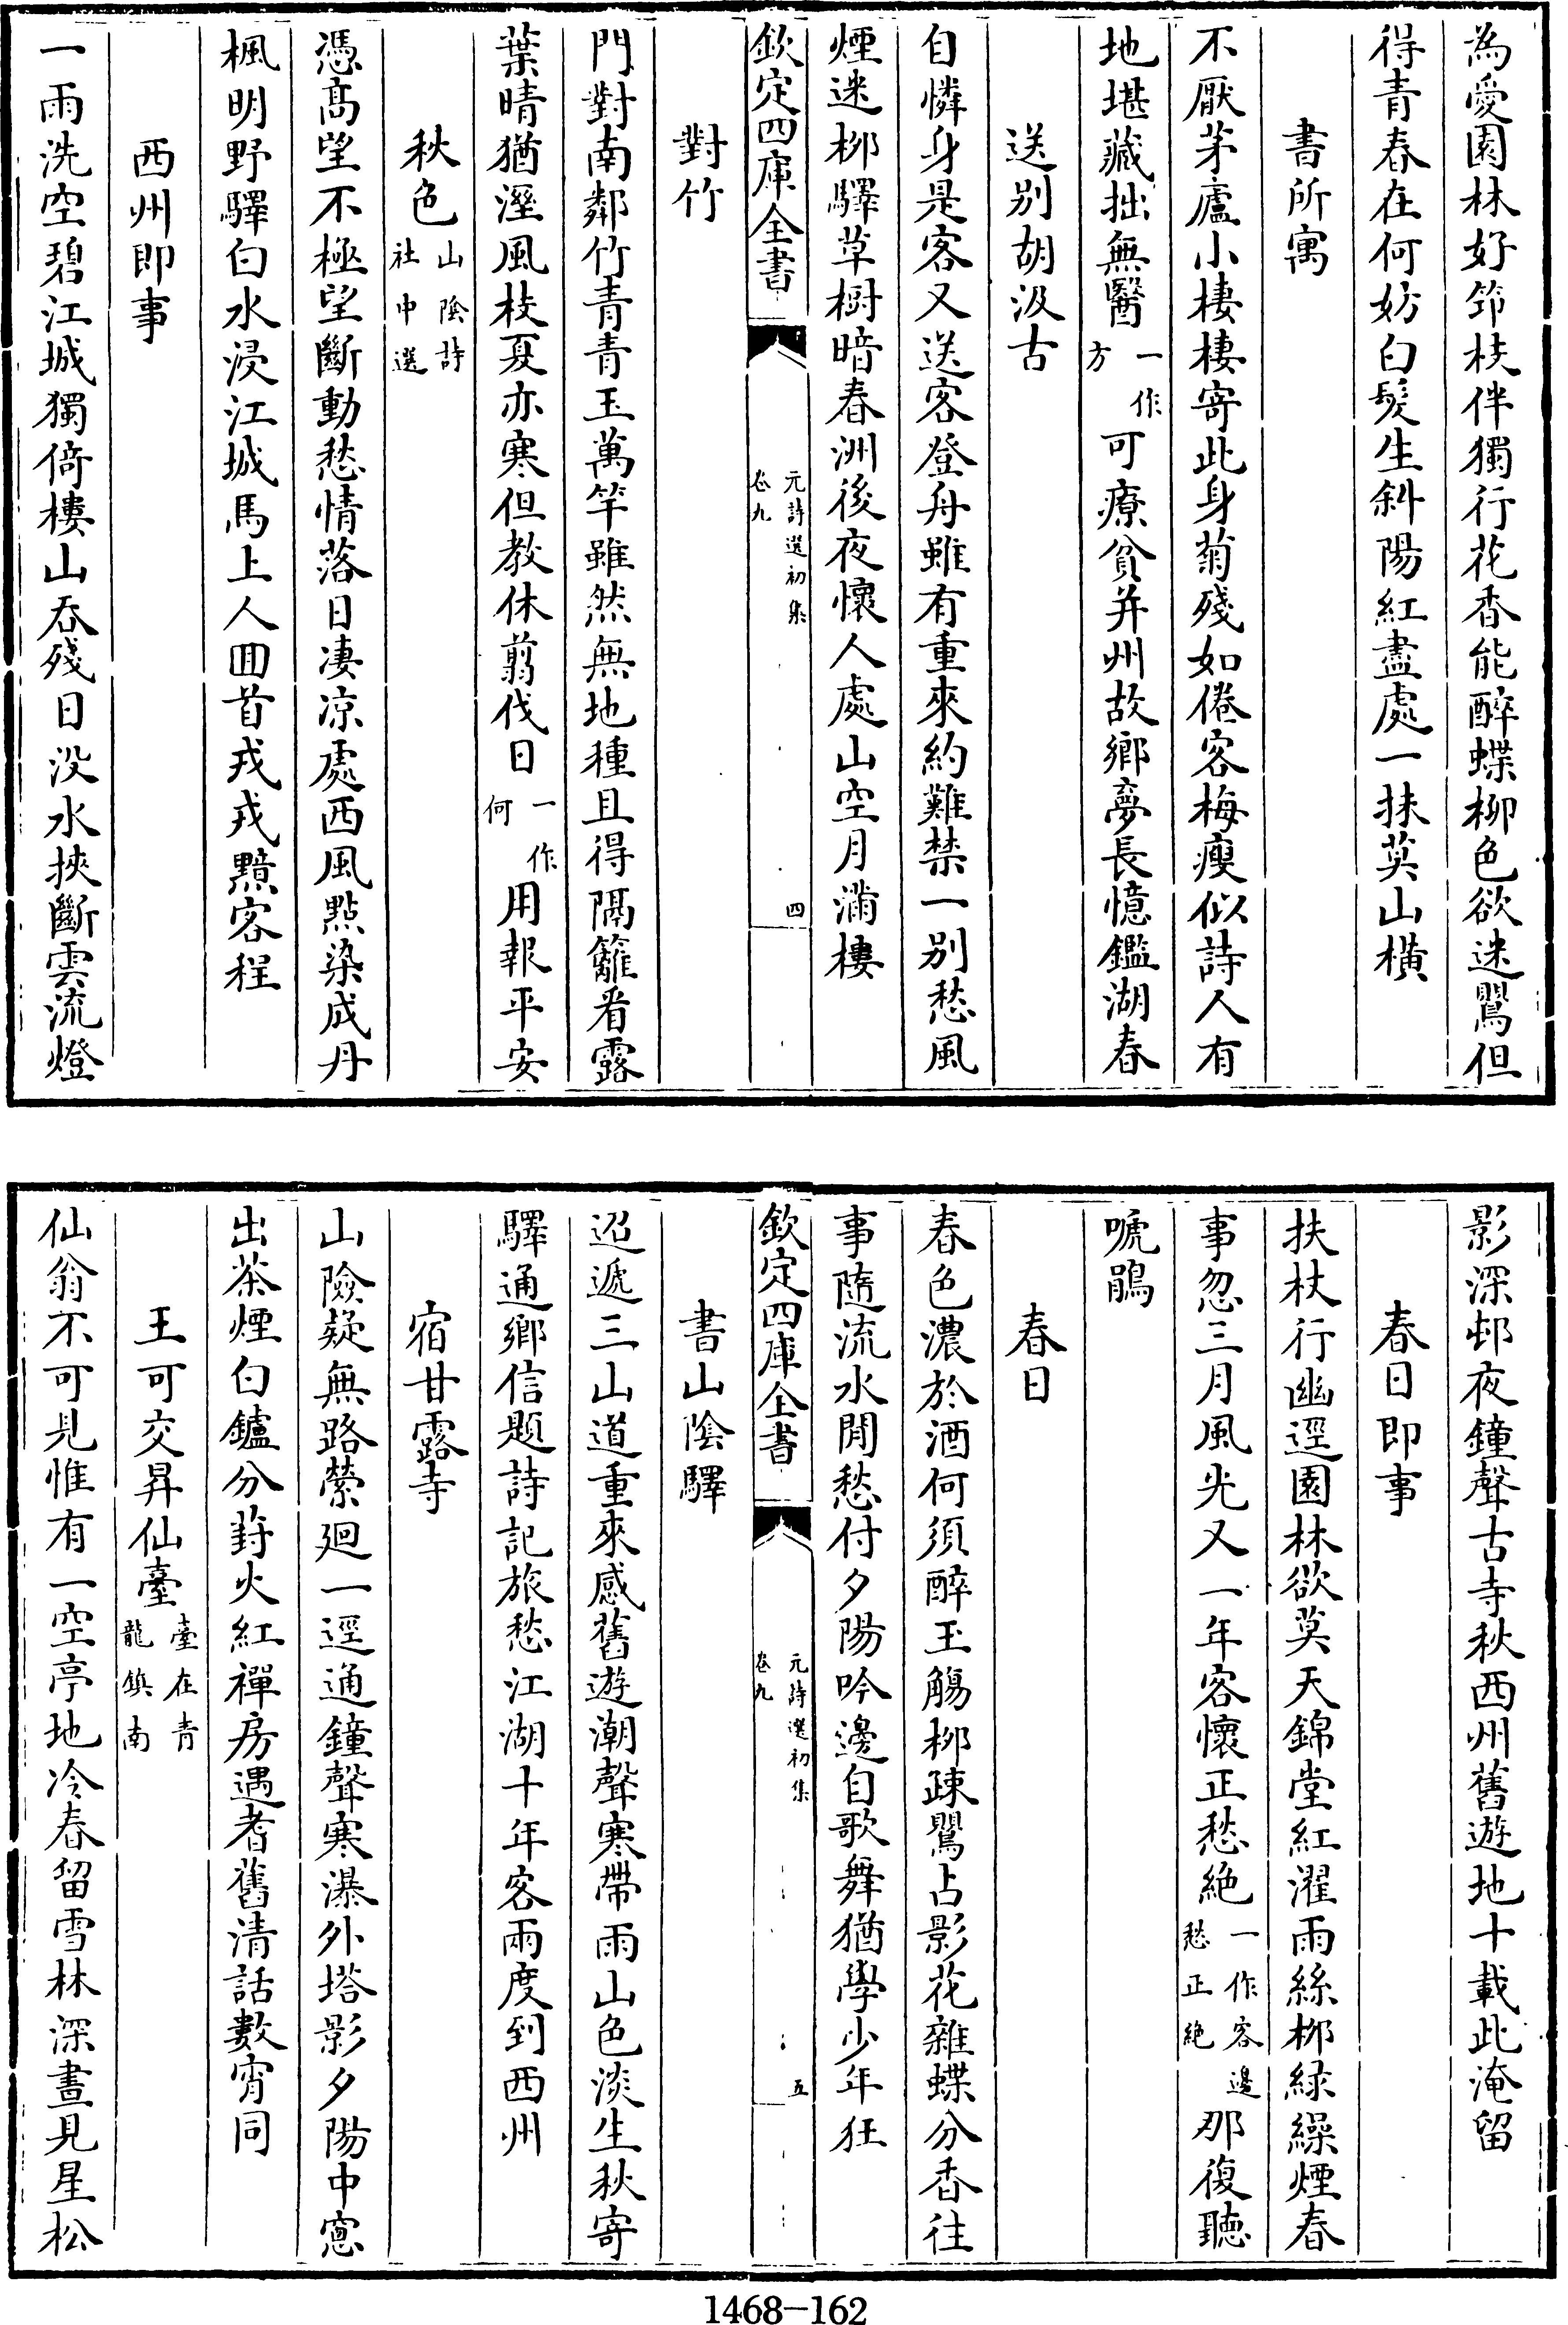 為愛園林好筇枝伴獨行花香能醉蝶柳色欲迷鸎但
得青春在何妨白髮生斜陽紅盡處一抹莫山橫
書所寓
不厭茅廬小棲棲寄此身菊殘如倦客梅瘦似詩人有
地堪藏拙無醫一作方可療貧并州故鄉夢長憶鑑湖春
送别胡汲古
自憐身是客又送客登舟雖有重來約難禁一别愁風
煙迷栁驛草樹暗春洲後夜懷人處山空月滿樓
欽定四庫全書
元詩選初集
卷九
四
對竹
門對南鄰竹青青玉萬竿雖然無地種且得隔籬看露
葉晴猶溼風枝夏亦寒但教休翦伐日一作何用報平安
秋色山陰詩社中選
憑髙望不極望斷動愁情落日凄凉處西風點染成丹
楓明野驛白水浸江城馬上人囬首戎戎黯客程
西州即事
一雨洗空碧江城獨倚樓山吞殘日没水挾斷雲流燈
影深邨夜鐘聲古寺秋西州舊遊地十載此淹留
春日即事
扶杖行幽逕園林欲莫天錦堂紅濯雨絲栁緑繰煙春
事忽三月風光又一年客懷正愁絶一作客邊愁正絶那復聽
嗁鵑
春日
春色濃於酒何須醉玉觴栁疎鸎占影花雜蝶分香往
事隨流水閒愁付夕陽吟邊自歌舞猶學少年狂
欽定四庫全書
元詩選初集
卷九
五
書山陰驛
迢遞三山道重來感舊遊潮聲寒帶雨山色淡生秋寄
驛通鄉信題詩記旅愁江湖十年客兩度到西州
宿甘露寺
山險疑無路縈廻一逕通鐘聲寒瀑外塔影夕陽中窻
出茶煙白鑪分葑火紅禪房遇耆舊清話數宵同
王可交昇仙臺臺在青龍鎮南
仙翁不可見惟有一空亭地冷春留雪林深晝見星松
1468-162